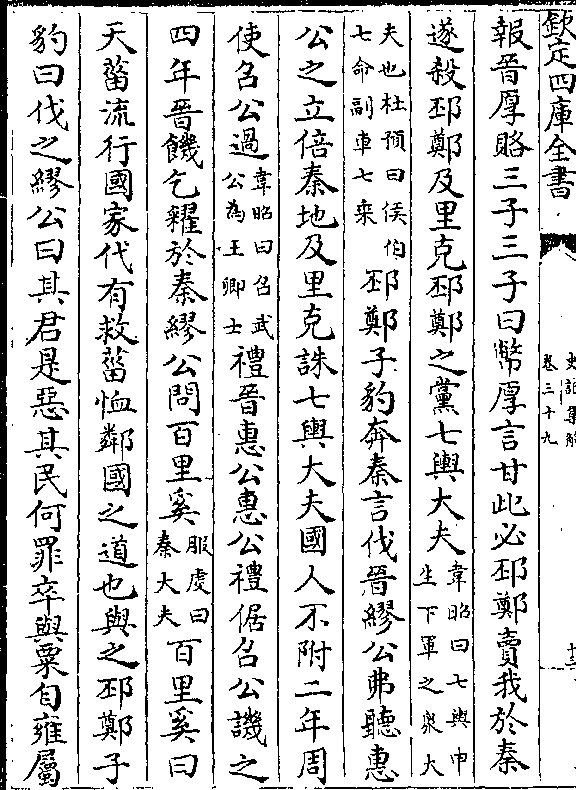 欽定四庫全書
史記集解
卷三十九
十三
報晉厚賂三子三子曰幣厚言甘此必邳鄭賣我於秦
遂殺邳鄭及里克邳鄭之黨七輿大夫韋昭曰七輿申生下軍之衆大
夫也杜預曰侯伯七命副車七乘邳鄭子豹奔秦言伐晉繆公弗聽惠
公之立倍秦地及里克誅七輿大夫國人不附二年周
使召公過韋昭曰召武公為王卿士禮晉惠公惠公禮倨召公譏之
四年晉饑乞糴於秦繆公問百里奚服虔曰秦大夫百里奚曰
天菑流行國家代有救菑恤鄰國之道也與之邳鄭子
豹曰伐之繆公曰其君是惡其民何罪卒與粟自雍屬